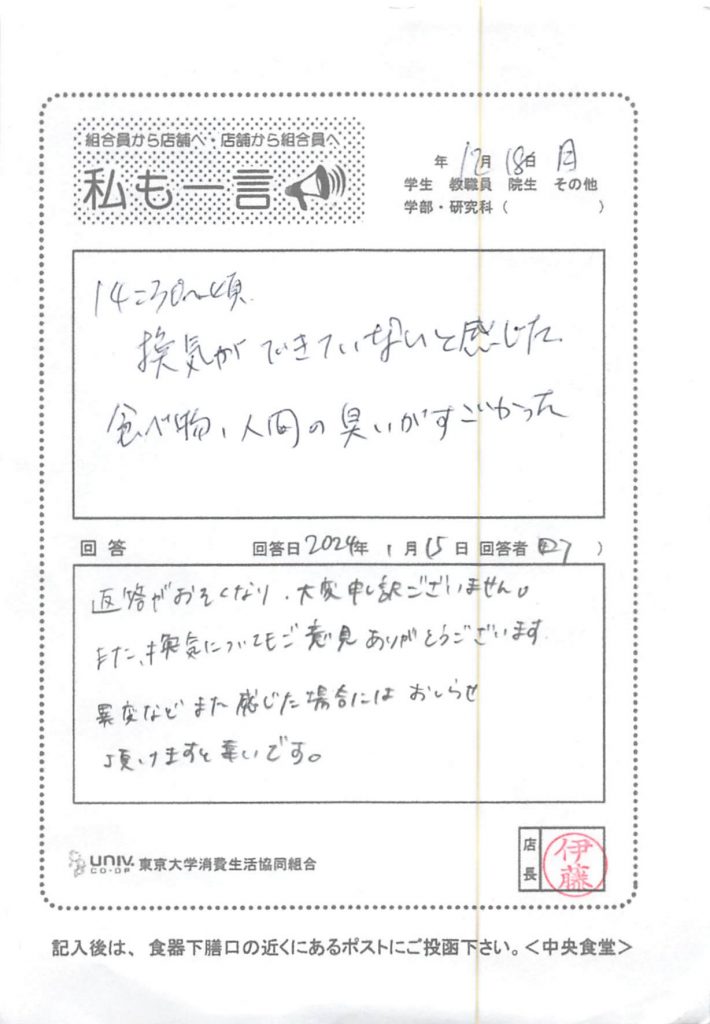 組合員から店舗へ・店舗から組合員へ
私も一言
年 12月 18日 月
学生 教職員 院生 その他
学部・研究科( )
14:30〜頃.
換気ができていないと感じた.
食べ物、人間の臭いがすごかった
回答 回答日2024年 1月15日 回答者 )
返答がおそくなり、大変申し訳ございません。
また、換気についてもご意見ありがとうございます
異変などまた感じた場合には おしらせ
頂けますと幸いです。
UNIV. CO-OP 東京大学消費生活協同組合
店長 伊藤
記入後は、食器下膳口の近くにあるポストにご投函下さい。<中央食堂>